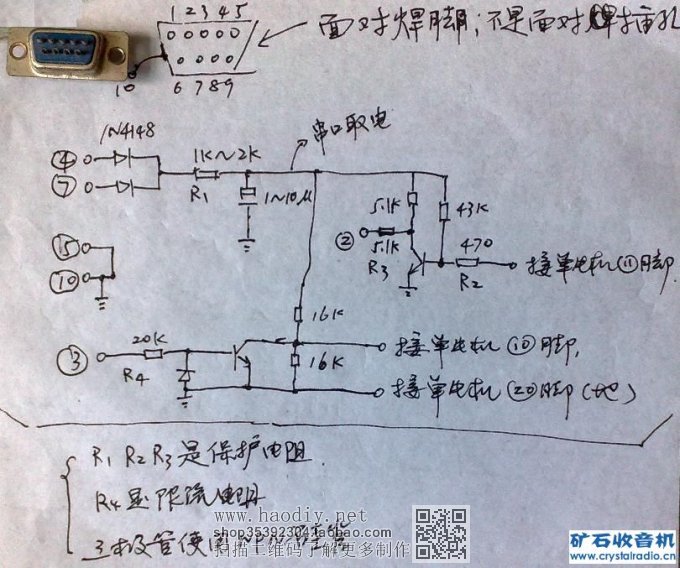 1 2 3 4 5
面对焊脚,不是面对插孔
10
6 7 8 9
1N4148
串口取电
④
1K~2K
⑦
R1
1~10μ
5.1K
43K
②
5.1K
470
R3
R2
接单片机⑪脚
⑮
⑩
16K
20K
③
接单片机⑩脚
16K
R4
接单片机⑳脚(地)
R1 R2 R3是保护电阻
R4是限流电阻
www.haodiy.net
shop35392304.taobao.com
三极管使用NPN
扫描二维码了解更多制作
矿石收音机
www.crystalradio.cn